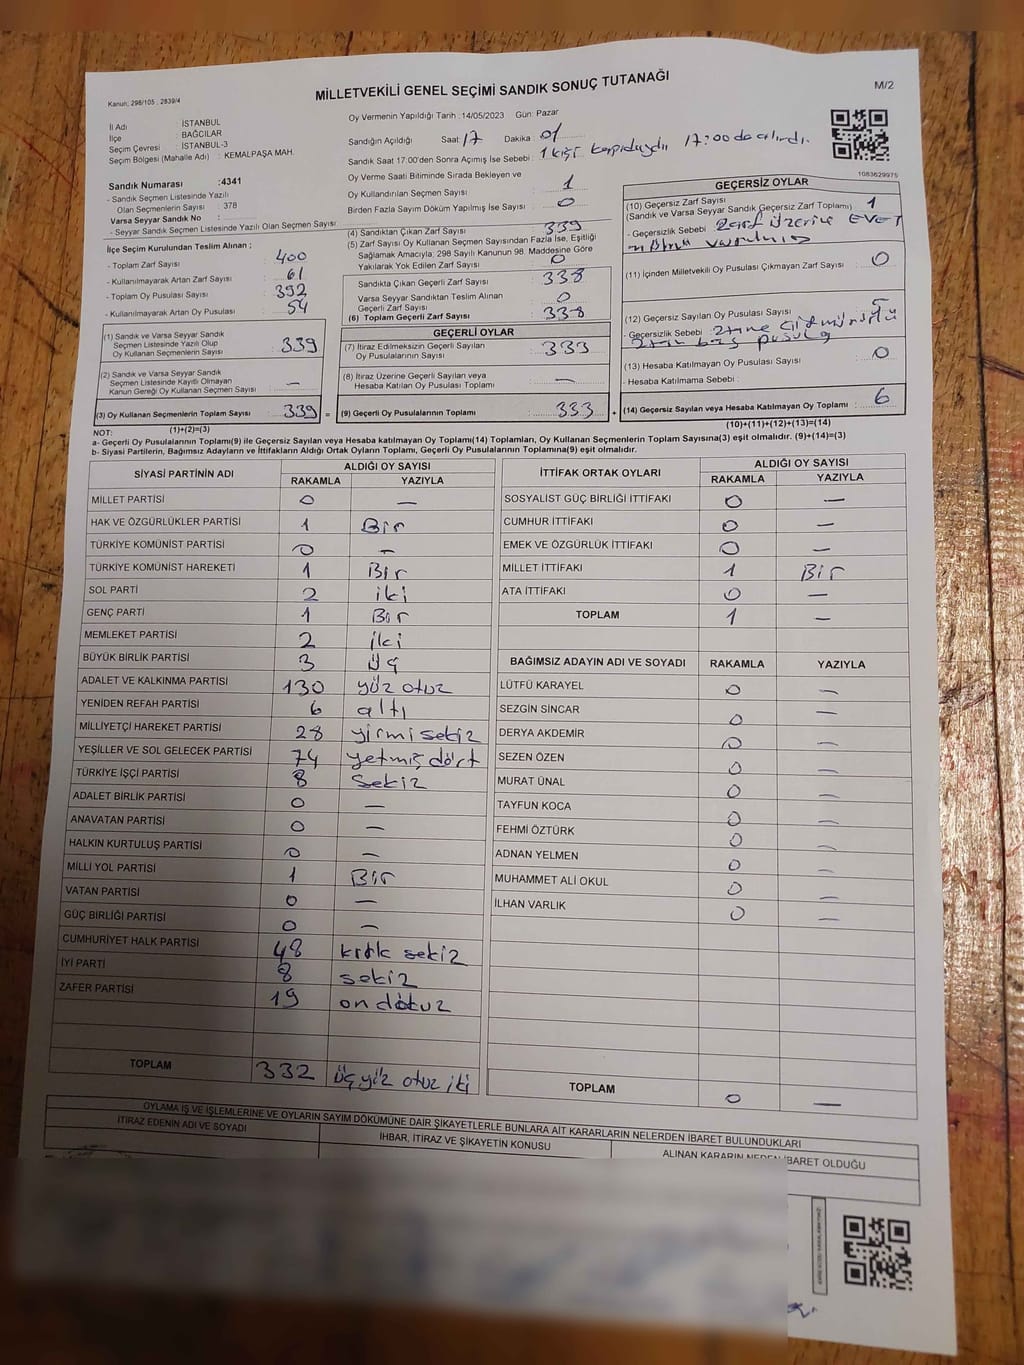 Kanun: 298/105, 2839/4
MİLLETVEKİLİ GENEL SEÇİMİ SANDIK SONUÇ TUTANAĞI
M/2
İl Adı : İSTANBUL
İlçe : BAĞCILAR
Seçim Çevresi : İSTANBUL-3
Seçim Bölgesi (Mahalle Adı) : KEMALPAŞA MAH.
Oy Vermenin Yapıldığı Tarih : 14/05/2023 Gün: Pazar
Sandığın Açıldığı Saat : 17 Dakika : 01
Sandık Saat 17:00'den Sonra Açımış İse Sebebi : 1 kişi kapıdaydı 17:00 da alındı.
Oy Verme Saati Bitiminde Sırada Bekleyen ve
Oy Kullandırılan Seçmen Sayısı : 1
Birden Fazla Sayım Döküm Yapılmış İse Sayısı : 0
1083629975
Sandık Numarası : 4341
- Sandık Seçmen Listesinde Yazılı
Olan Seçmenlerin Sayısı : 378
Varsa Seyyar Sandık No :
- Seyyar Sandık Seçmen Listesinde Yazılı Olan Seçmen Sayısı :
İlçe Seçim Kurulundan Teslim Alınan ;
- Toplam Zarf Sayısı : 400
- Kullanılmayarak Artan Zarf Sayısı : 61
- Toplam Oy Pusulası Sayısı : 392
- Kullanılmayarak Artan Oy Pusulası : 54
(1) Sandık ve Varsa Seyyar Sandık
Seçmen Listesinde Yazılı Olup
Oy Kullanan Seçmenlerin Sayısı : 339
(2) Sandık ve Varsa Seyyar Sandık
Seçmen Listesinde Kayıtlı Olmayan
Kanun Gereği Oy Kullanan Seçmen Sayısı : —
(3) Oy Kullanan Seçmenlerin Toplam Sayısı : 339 =
(1)+(2)=(3)
(4) Sandıktan Çıkan Zarf Sayısı : 339
(5) Zarf Sayısı Oy Kullanan Seçmen Sayısından Fazla İse, Eşitliği
Sağlamak Amacıyla, 298 Sayılı Kanunun 98. Maddesine Göre
Yakılarak Yok Edilen Zarf Sayısı : 0
Sandıkta Çıkan Geçerli Zarf Sayısı : 338
Varsa Seyyar Sandıktan Teslim Alınan
Geçerli Zarf Sayısı : 0
(6) Toplam Geçerli Zarf Sayısı : 338
GEÇERLİ OYLAR
(7) İtiraz Edilmeksizin Geçerli Sayılan
Oy Pusulalarının Sayısı : 333
(8) İtiraz Üzerine Geçerli Sayılan veya
Hesaba Katılan Oy Pusulası Toplamı : —
(9) Geçerli Oy Pusulalarının Toplamı : 333 +
GEÇERSİZ OYLAR
(10) Geçersiz Zarf Sayısı : 1
(Sandık ve Varsa Seyyar Sandık Geçersiz Zarf Toplamı)
- Geçersizlik Sebebi : Zarf üzerine EVET
(11) İçinden Milletvekili Oy Pusulası Çıkmayan Zarf Sayısı : 0
(12) Geçersiz Sayılan Oy Pusulası Sayısı : 5
- Geçersizlik Sebebi : 2 tane
boş pusula
(13) Hesaba Katılmayan Oy Pusulası Sayısı : 0
- Hesaba Katılmama Sebebi :
(14) Geçersiz Sayılan veya Hesaba Katılmayan Oy Toplamı : 6
(10)+(11)+(12)+(13)=(14)
NOT:
a- Geçerli Oy Pusulalarının Toplamı(9) ile Geçersiz Sayılan veya Hesaba katılmayan Oy Toplamı(14) Toplamları, Oy Kullanan Seçmenlerin Toplam Sayısına(3) eşit olmalıdır. (9)+(14)=(3)
b- Siyasi Partilerin, Bağımsız Adayların ve İttifakların Aldığı Ortak Oyların Toplamı, Geçerli Oy Pusulalarının Toplamına(9) eşit olmalıdır.
SİYASİ PARTİNİN ADI ALDIĞI OY SAYISI
RAKAMLA YAZIYLA
MİLLET PARTİSİ 0 —
HAK VE ÖZGÜRLÜKLER PARTİSİ 1 Bir
TÜRKİYE KOMÜNİST PARTİSİ 0 —
TÜRKİYE KOMÜNİST HAREKETİ 1 Bir
SOL PARTİ 2 iki
GENÇ PARTİ 1 Bir
MEMLEKET PARTİSİ 2 iki
BÜYÜK BİRLİK PARTİSİ 3 üç
ADALET VE KALKINMA PARTİSİ 130 yüz otuz
YENİDEN REFAH PARTİSİ 6 altı
MİLLİYETÇİ HAREKET PARTİSİ 28 yirmi sekiz
YEŞİLLER VE SOL GELECEK PARTİSİ 74 yetmiş dört
TÜRKİYE İŞÇİ PARTİSİ 8 Sekiz
ADALET BİRLİK PARTİSİ 0 —
ANAVATAN PARTİSİ 0 —
HALKIN KURTULUŞ PARTİSİ 0 —
MİLLİ YOL PARTİSİ 1 Bir
VATAN PARTİSİ 0 —
GÜÇ BİRLİĞİ PARTİSİ 0 —
CUMHURİYET HALK PARTİSİ 48 kırk sekiz
İYİ PARTİ 8 sekiz
ZAFER PARTİSİ 19 on dokuz
TOPLAM 332 üç yüz otuz iki
İTTİFAK ORTAK OYLARI ALDIĞI OY SAYISI
RAKAMLA YAZIYLA
SOSYALİST GÜÇ BİRLİĞİ İTTİFAKI 0 —
CUMHUR İTTİFAKI 0 —
EMEK VE ÖZGÜRLÜK İTTİFAKI 0 —
MİLLET İTTİFAKI 1 Bir
ATA İTTİFAKI 0 —
TOPLAM 1 —
BAĞIMSIZ ADAYIN ADI VE SOYADI RAKAMLA YAZIYLA
LÜTFÜ KARAYEL 0 —
SEZGİN SİNCAR 0 —
DERYA AKDEMİR 0 —
SEZEN ÖZEN 0 —
MURAT ÜNAL 0 —
TAYFUN KOCA 0 —
FEHMİ ÖZTÜRK 0 —
ADNAN YELMEN 0 —
MUHAMMET ALİ OKUL 0 —
İLHAN VARLIK 0 —
TOPLAM 0 —
OYLAMA İŞ VE İŞLEMLERİNE VE OYLARIN SAYIM DÖKÜMÜNE DAİR ŞİKAYETLERLE BUNLARA AİT KARARLARIN NELERDEN İBARET BULUNDUKLARI
İTİRAZ EDENİN ADI VE SOYADI İHBAR, İTİRAZ VE ŞİKAYETİN KONUSU ALINAN KARARIN NEDEN İBARET OLDUĞU